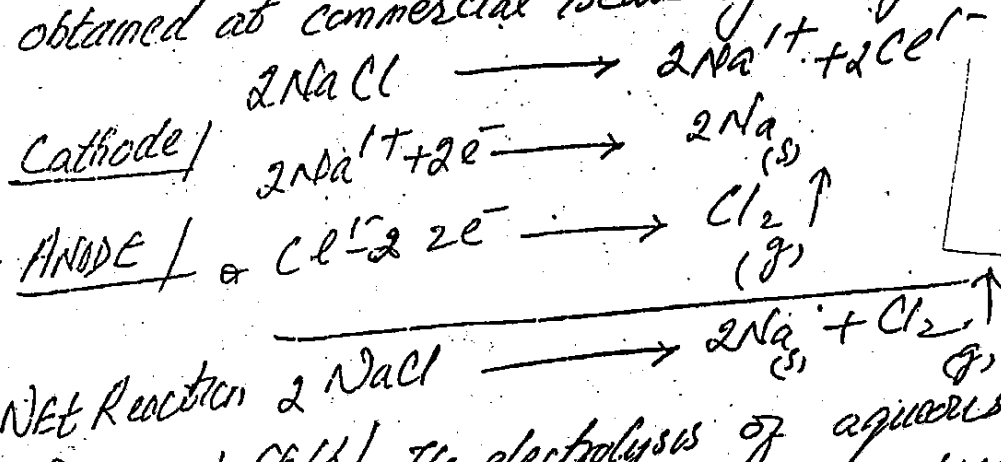 obtained at commercial
2NaCl → 2Na¹⁺ + 2Cl¹⁻
Cathode/ 2Na¹⁺ + 2e⁻ → 2Na(s)
ANODE/ 2Cl¹⁻ - 2e⁻ → Cl₂(g) ↑
NEt Reaction 2NaCl → 2Na(s) + Cl₂(g) ↑
The electrolysis of aqueous